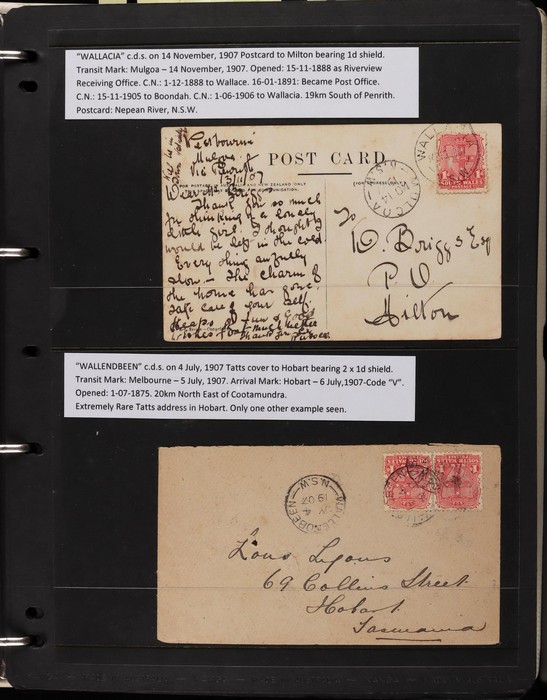 "WALLACIA" c.d.s. on 14 November, 1907 Postcard to Milton bearing 1d shield.
Transit Mark: Mulgoa – 14 November, 1907. Opened: 15-11-1888 as Riverview
Receiving Office. C.N.: 1-12-1888 to Wallace. 16-01-1891: Became Post Office.
C.N.: 15-11-1905 to Boondah. C.N.: 1-06-1906 to Wallacia. 19km South of Penrith.
Postcard: Nepean River, N.S.W.
Mulgoa
Via Penrith
13/11/07
POST CARD
WALLACIA
MULGOA
N.S.W
Thank you so much
for thinking of a lonely
little girl. I thought I
would be left in the cold
Every thing awfully
slow – The charm of
the home has gone.
Take care of your self.
Heaps of fun & good
wishes
To
D. Briggs Esq
P.O
Milton
"WALLENDBEEN" c.d.s. on 4 July, 1907 Tatts cover to Hobart bearing 2 x 1d shield.
Transit Mark: Melbourne – 5 July, 1907. Arrival Mark: Hobart – 6 July,1907-Code "V".
Opened: 1-07-1875. 20km North East of Cootamundra.
Extremely Rare Tatts address in Hobart. Only one other example seen.
WALLENDBEEN
4
JY
1907
N.S.W
Lyons
69 Collins Street
Hobart
Tasmania